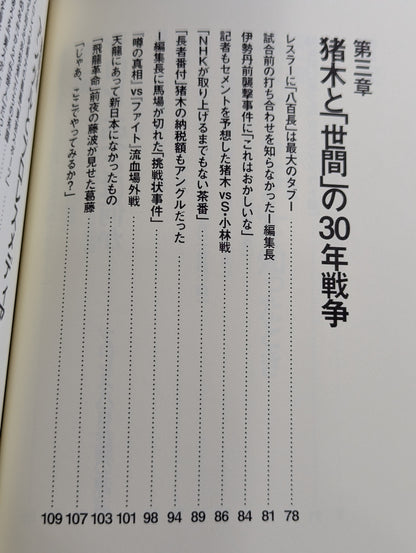 第三章
猪木と「世間」の30年戦争
レスラーに「八百長」は最大のタブー 78
試合前の打ち合わせを知らなかったI編集長 81
伊勢丹前襲撃事件に「これはおかしいな」 84
記者もセメントを予想した猪木vsS・小林戦 86
「NHKが取り上げるまでもない茶番」 89
「長者番付」猪木の納税額もアングルだった 94
I編集長に馬場が切れた「挑戦状事件」 98
『噂の真相』vs『ファイト』流血場外戦 101
天龍にあって新日本になかったもの 103
「飛龍革命」前夜の藤波が見せた葛藤 107
「じゃあ、ここでやってみるか？」 109